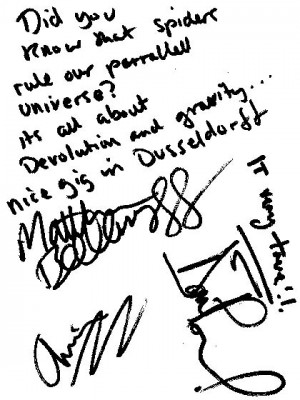 Did you
Know that spiders
rule our parrallell
universe?
its all about
Devolution and gravity...
nice gig in Dusseldorff
Matthew
Bellamy
Chris